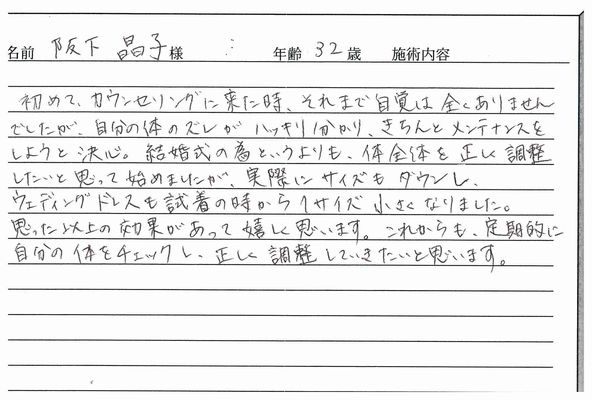 名前 阪下 晶子様 : 年齢 32歳 施術内容
初めて、カウンセリングに来た時、それまで自覚は全くありません
でしたが、自分の体のズレがハッキリ分かり、きちんとメンテナンスを
しようと決心。結婚式の為というよりも、体全体を正しく調整
したいと思って始めましたが、実際にサイズもダウンし、
ウェディングドレスも試着の時から1サイズ小さくなりました。
思った以上の効果があって嬉しく思います。これからも、定期的に
自分の体をチェックし、正しく調整していきたいと思います。